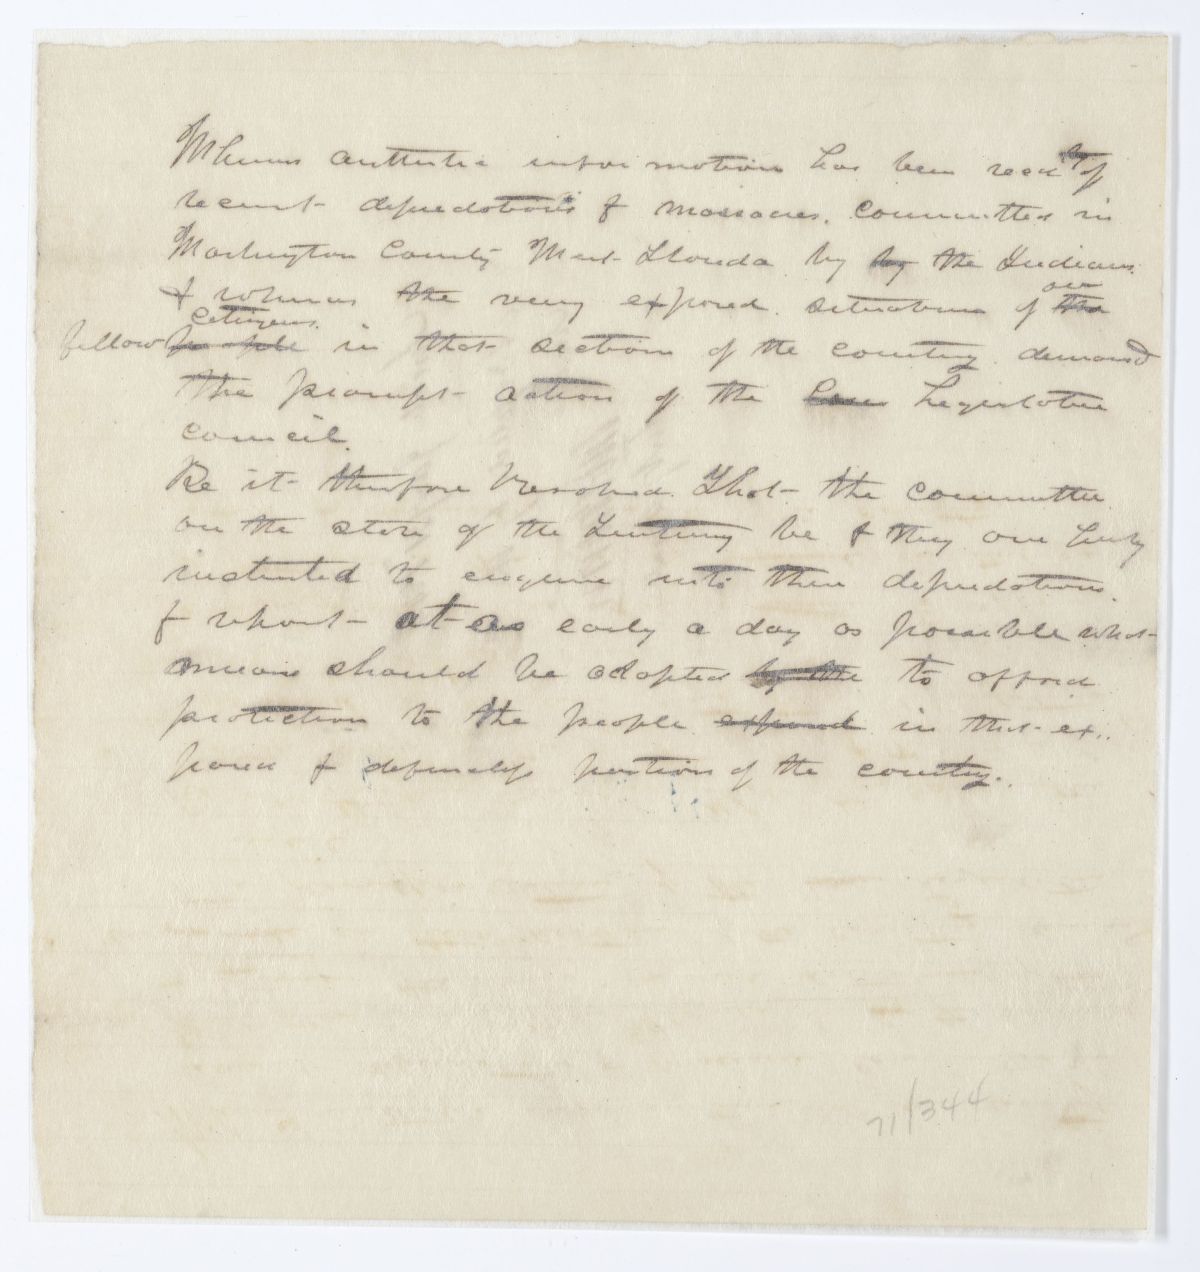 Whereas authentic information has been recd of
recent depredations & massacres, committed in
Washington County West Florida by by the Indians
& whereas the very exposed situation of the our
fellow people citizens in that section of the country demand
the prompt action of the Legislative
council.
Be it therefore Resolved That the committee
on the state of the Territory be & they are hereby
instructed to enquire into these depredations.
& report at as early a day as possible what
means should be adopted by the to afford
protection to the people exposed in that ex-
posed & defenceless portion of the country.
71/344